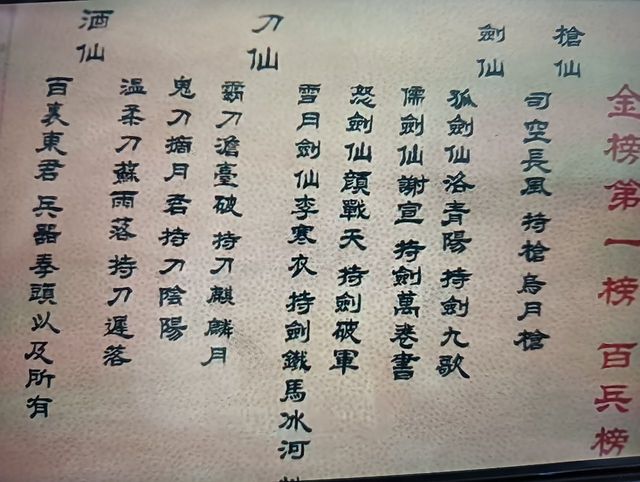 金榜第一榜 百兵榜
槍仙
司空長風 持槍烏月槍
劍仙
孤劍仙洛青陽 持劍九歌
儒劍仙謝宣 持劍萬卷書
怒劍仙顏戰天 持劍破軍
雪月劍仙李寒衣 持劍鐵馬冰河
刀仙
霸刀澹臺破 持刀麒麟月
鬼刀摘月君 持刀陰陽
溫柔刀蘇雨落 持刀遲落
酒仙
百裏東君 兵器拳頭以及所有